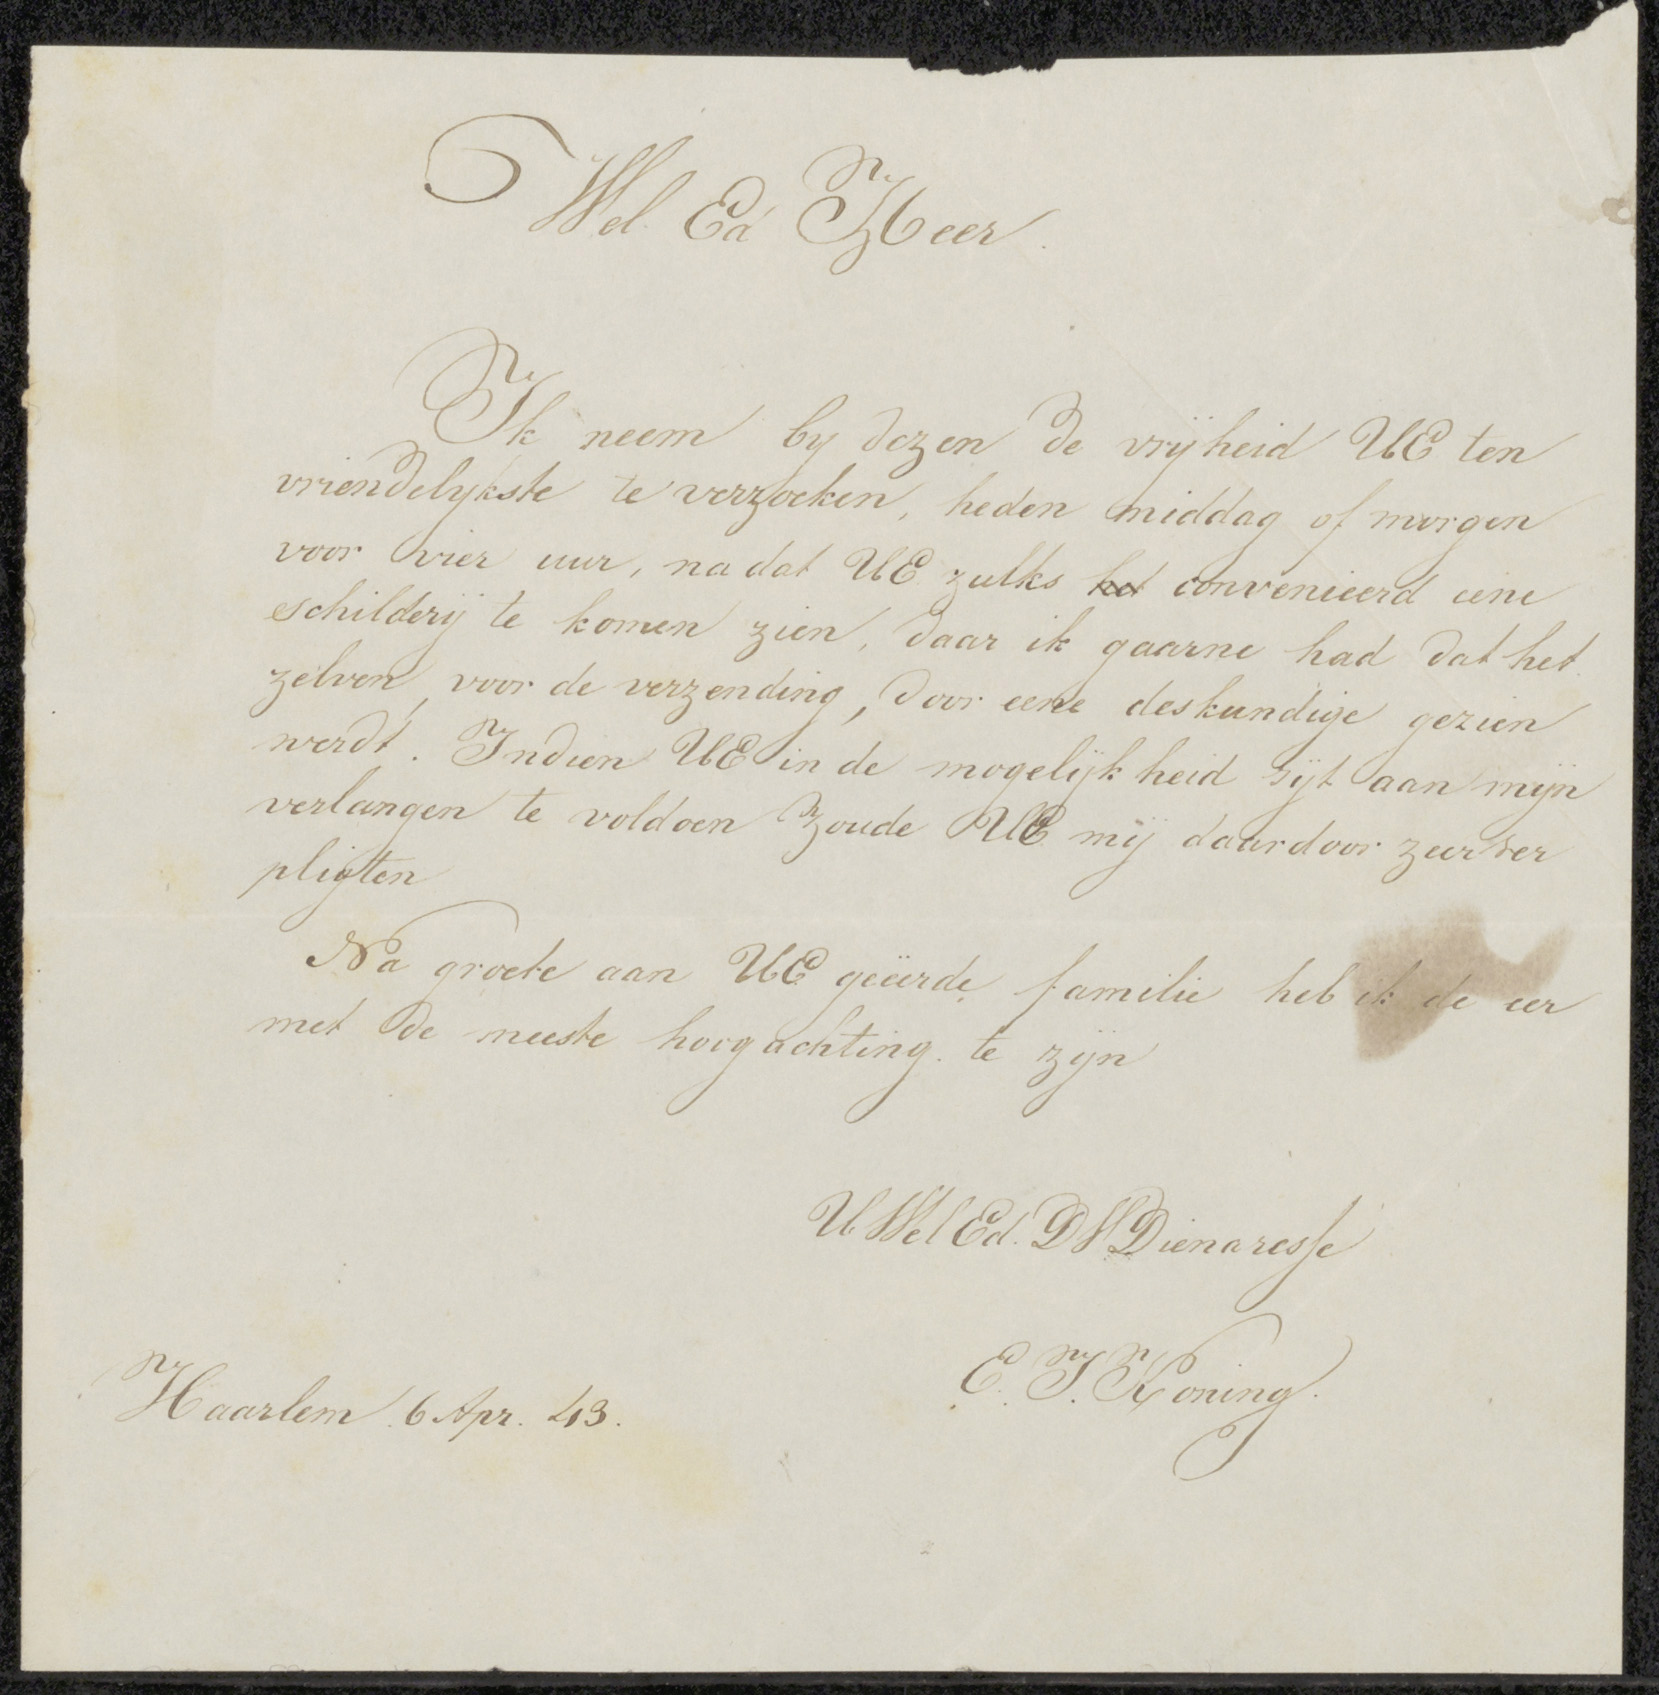 Wel Ed Heer.
Ik neem by dezen de vrijheid UE ten
vriendelykste te verzoeken, heden middag of morgen
voor vier uur, na dat UE zulks het convenieerd eene
schilderij te komen zien, daar ik gaarne had dat het
zelven, voor de verzending, door eene deskundige gezien
werdt. Indien UE in de mogelijkheid zijt aan mijn
verlangen te voldoen zoude UE mij daardoor zeer ver
pligten
Na groete aan UE geëerde familie heb ik de eer
met de meeste hoogachting te zijn
U Wel Ed. DW Dienaresse
E. J. Koning.
Haarlem 6 Apr. 43.